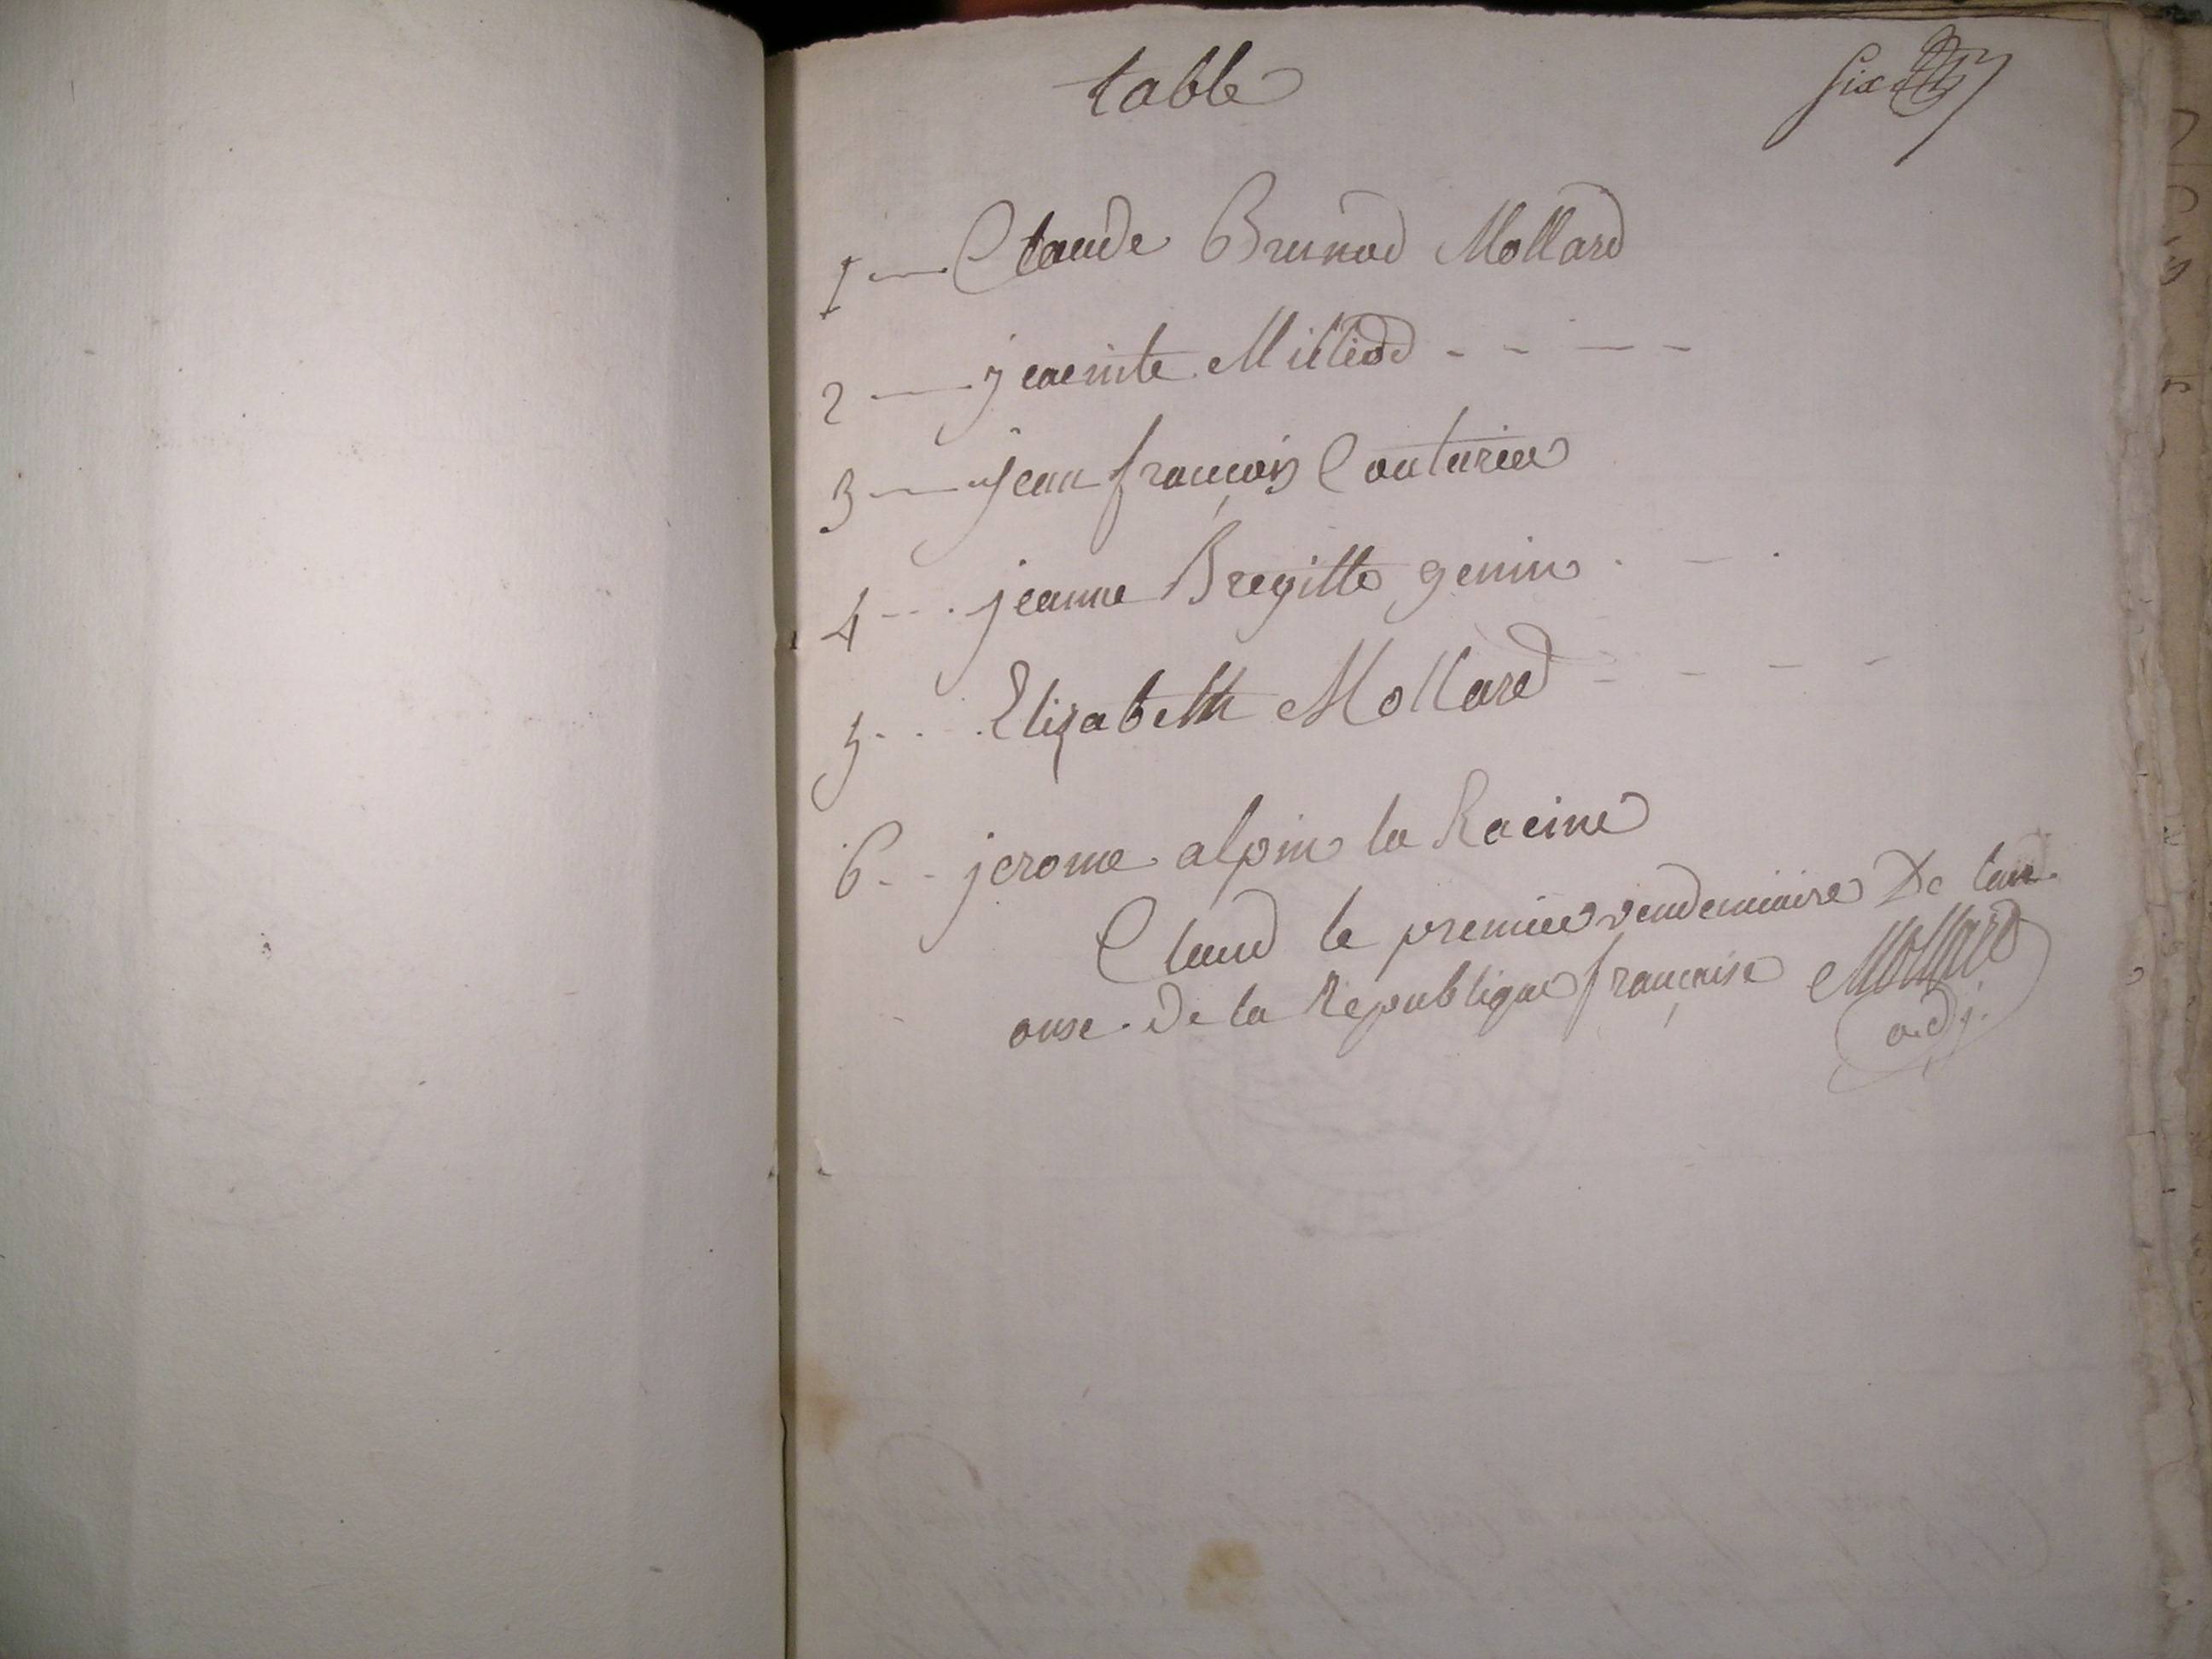 table
six
1 — Claude Brunod Mollard
2 — jeacinte Milliod - - - -
3 — jean françois Couturier
4 - - . jeanne Bregitte genin . - .
5 - . . Elizabeth Mollard - - - -
6 - - jerome alpin la Racine
Claud le premier vendemiaire De lan
onse . De la Republique française Mollard
adj.